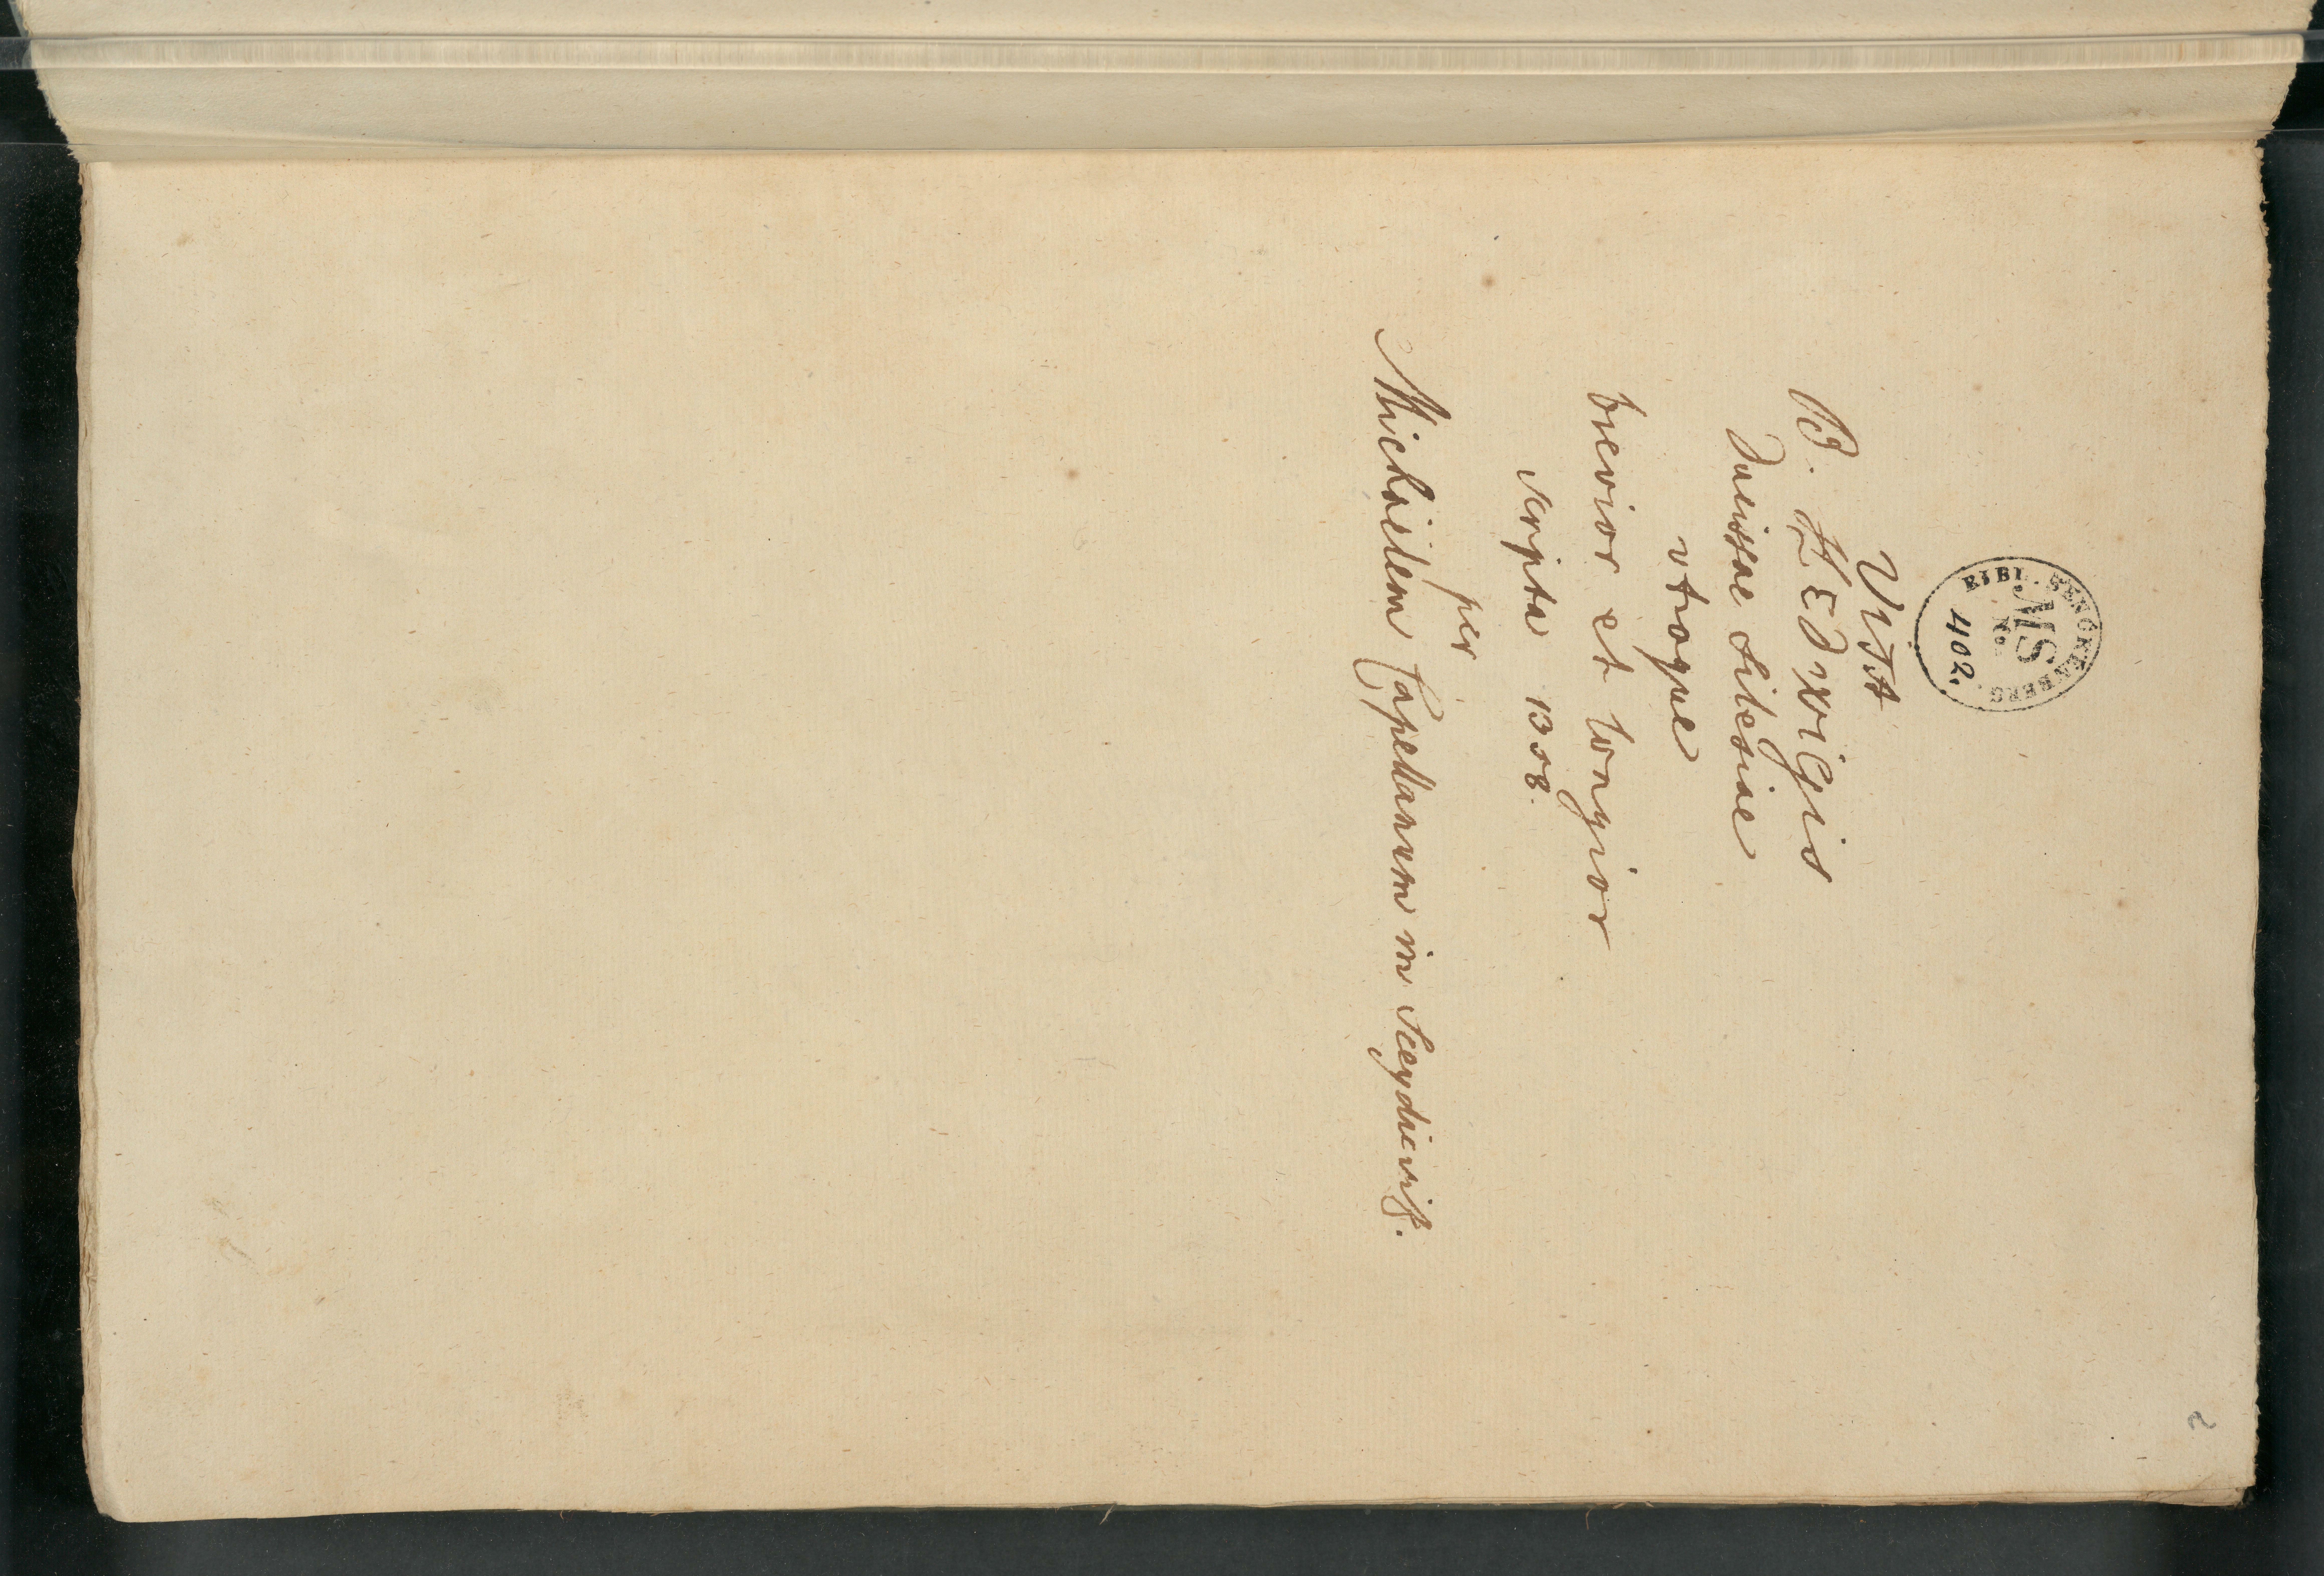 BIBL. SENCKENBERG.
MS
No.
402.
VITA
B. HEDwiGis
Ducissae Silesiae
utraque
brevior et longior
scripta 1308.
per
Michaelem Capellanum in Sceydicwiſ.
2